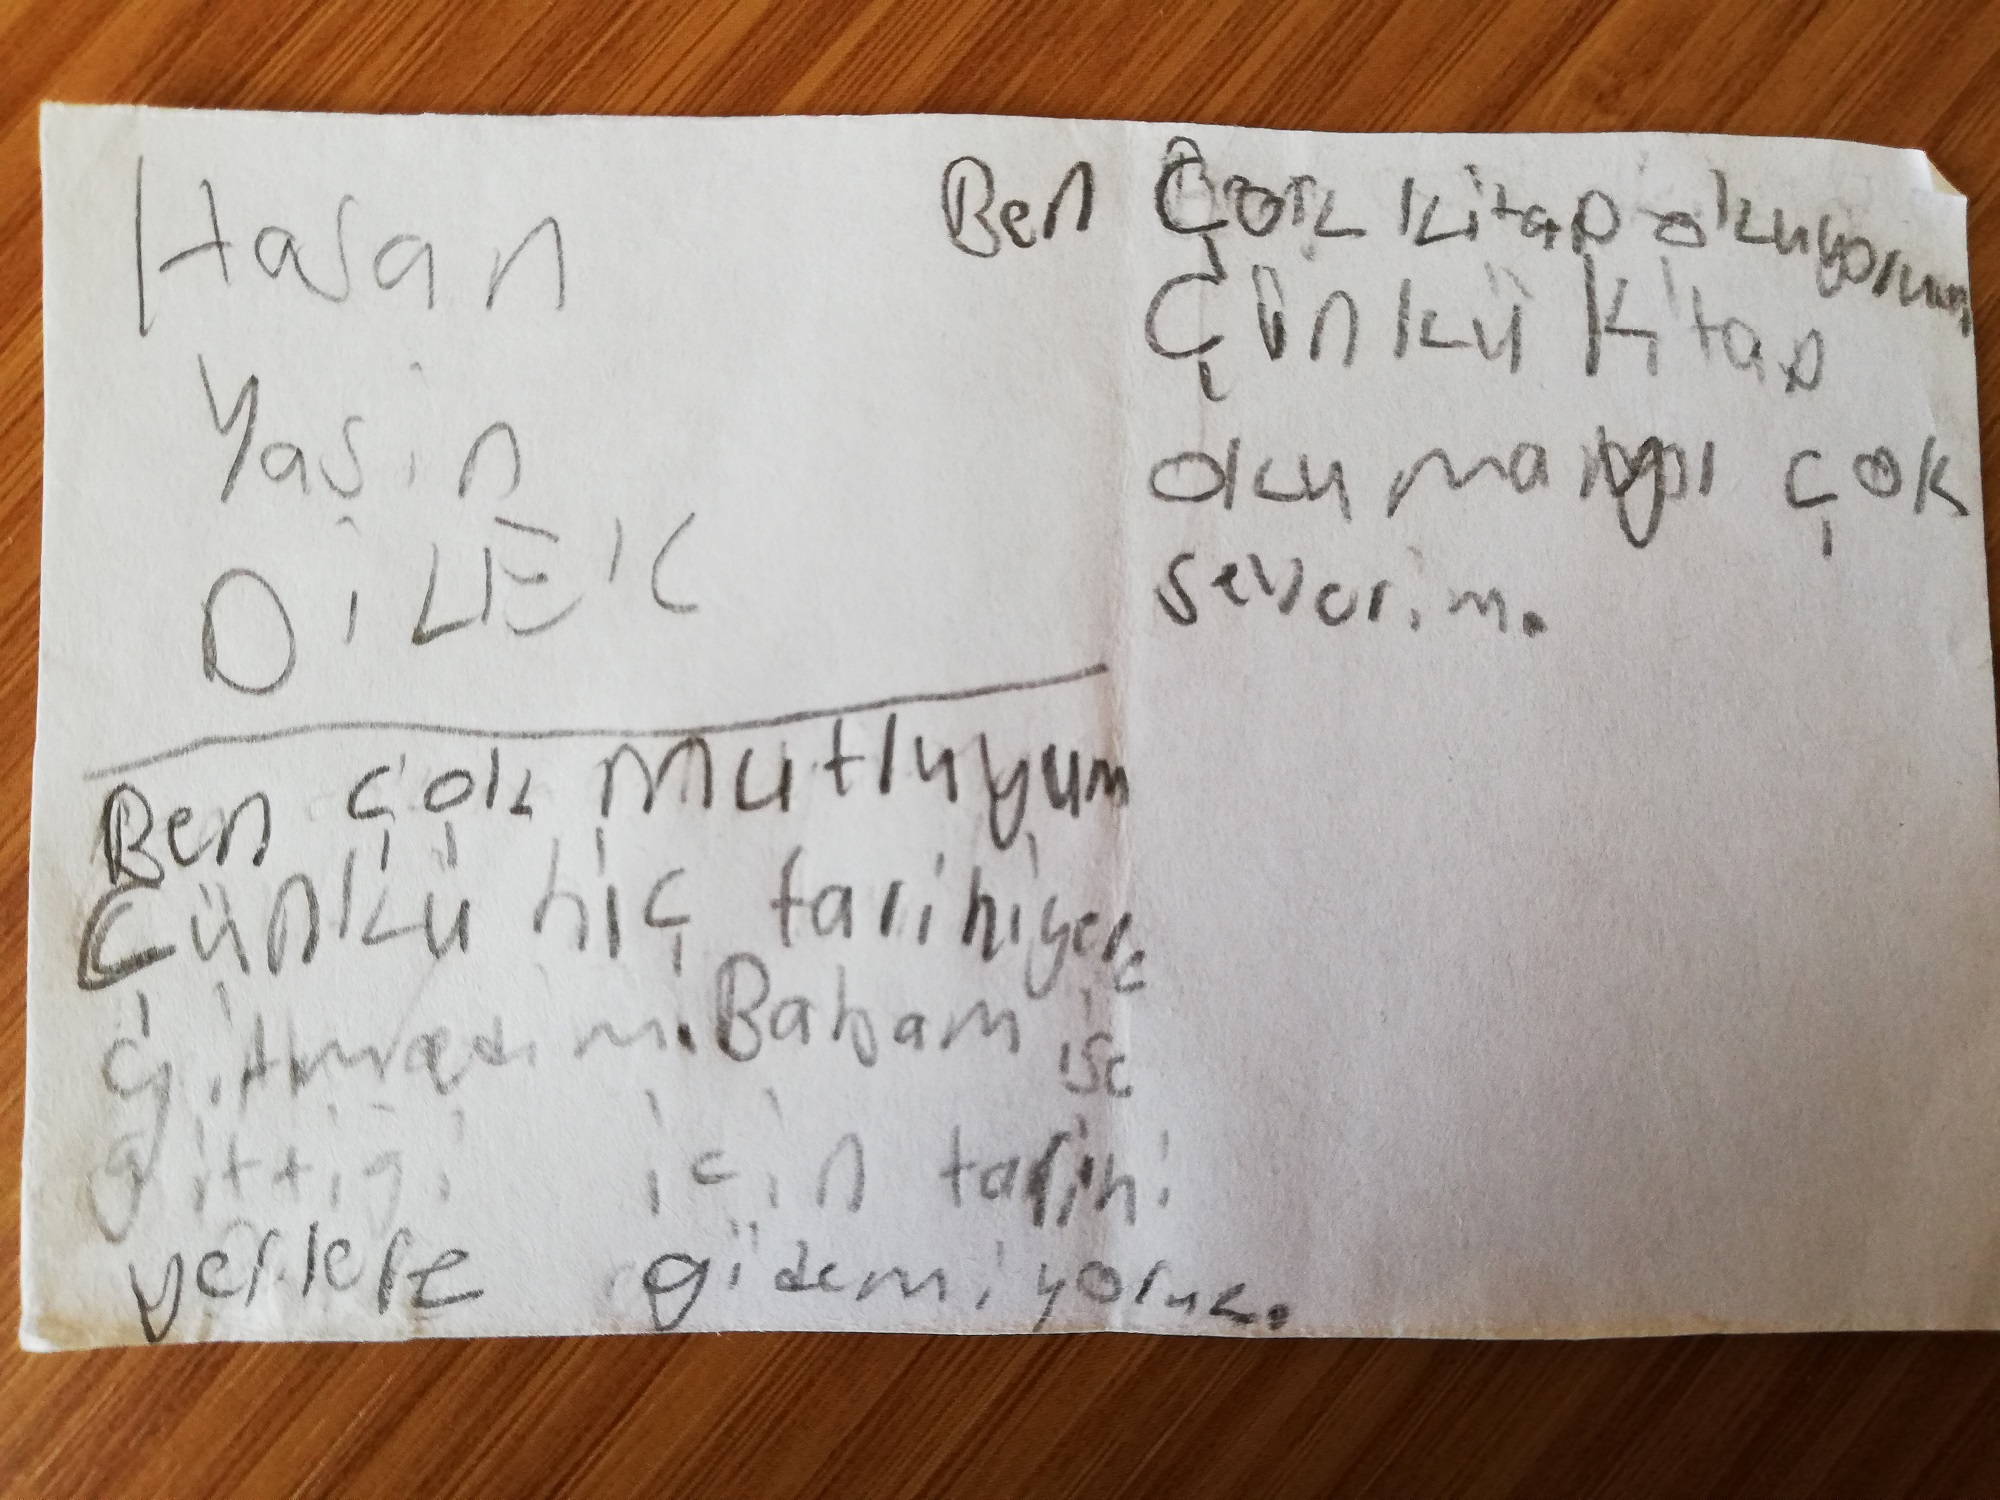 Hasan
Yasin
DİLEK
Ben çok mutluyum
Çünkü hiç tarihi yere
gitmedim. Babam işe
gittigi için tarihi
yerlere gidemiyoruz.
Ben Çok kitap okuyorum
Çünkü kitap
okumayı çok
severim.